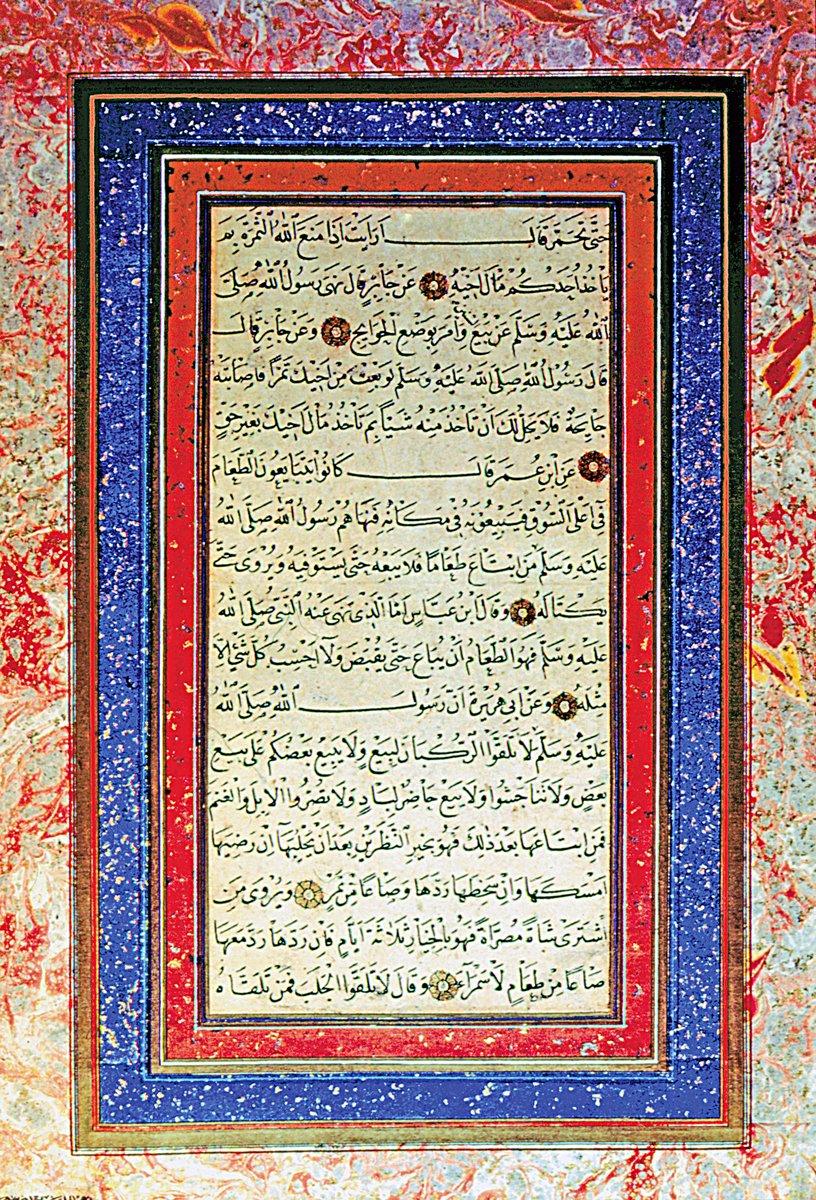 حَتَّى تَحْمَرَّ قَالَ اَرَاَيْتَ اِذَا مَنَعَ اللّٰهُ الثَّمَرَةَ بِمَ
يَأْخُذُ اَحَدُكُمْ مَالَ اَخِيْهِ عَنْ جَابِرٍ قَالَ نَهَى رَسُولُ اللّٰهِ صَلَّى
اللّٰهُ عَلَيْهِ وَسَلَّمَ عَنْ بَيْعِ وَاَمَرَ بِوَضْعِ الْجَوَايِحِ وَعَنْ جَابِرٍ قَالَ
قَالَ رَسُولُ اللّٰهِ صَلَّى اللّٰهُ عَلَيْهِ وَسَلَّمَ لَوْ بِعْتَ مِنْ اَخِيْكَ تَمْرًا فَاَصَابَتْهُ
جَايِحَةٌ فَلَا يَحِلُّ لَكَ اَنْ تَأْخُذَ مِنْهُ شَيْئًا بِمَ تَأْخُذُ مَالَ اَخِيْكَ بِغَيْرِ حَقٍّ
عَنِ ابْنِ عُمَرَ قَالَ كَانُوا يَبْتَاعُونَ الطَّعَامَ
فِي اَعْلَى السُّوْقِ فَيَبِيْعُوْنَهُ فِي مَكَانِهِ فَنَهَاهُمْ رَسُولُ اللّٰهِ صَلَّى اللّٰهُ
عَلَيْهِ وَسَلَّمَ مَنِ ابْتَاعَ طَعَامًا فَلَا يَبِعْهُ حَتَّى يَسْتَوْفِيَهُ وَيُرْوَى حَتَّى
يَكْتَالَهُ وَقَالَ ابْنُ عَبَّاسٍ اَمَّا الَّذِي نَهَى عَنْهُ النَّبِيُّ صَلَّى اللّٰهُ
عَلَيْهِ وَسَلَّمَ فَهُوَ الطَّعَامُ اَنْ يُبَاعَ حَتَّى يُقْبَضَ وَلَا اَحْسِبُ كُلَّ شَيْءٍ اِلَّا
مِثْلَهُ وَعَنْ اَبِي هُرَيْرَةَ اَنَّ رَسُولَ اللّٰهِ صَلَّى اللّٰهُ
عَلَيْهِ وَسَلَّمَ لَا تَلَقَّوُا الرُّكْبَانَ لِبَيْعٍ وَلَا يَبِيْعُ بَعْضُكُمْ عَلَى بَيْعِ
بَعْضٍ وَلَا تَنَاجَشُوا وَلَا يَبِيْعُ حَاضِرٌ لِبَادٍ وَلَا تُصَرُّوا الْاِبِلَ وَالْغَنَمَ
فَمَنِ ابْتَاعَهَا بَعْدَ ذٰلِكَ فَهُوَ بِخَيْرِ النَّظَرَيْنِ بَعْدَ اَنْ يَحْلِبَهَا اِنْ رَضِيَهَا
اَمْسَكَهَا وَاِنْ سَخِطَهَا رَدَّهَا وَصَاعًا مِنْ تَمْرٍ وَيُرْوَى مَنِ
اشْتَرَى شَاةً مُصَرَّاةً فَهُوَ بِالْخِيَارِ ثَلَاثَةَ اَيَّامٍ فَاِنْ رَدَّهَا رَدَّ مَعَهَا
صَاعًا مِنْ طَعَامٍ لَا سَمْرَآءَ وَقَالَ لَا تَلَقَّوُا الْجَلَبَ فَمَنْ تَلَقَّاهُ